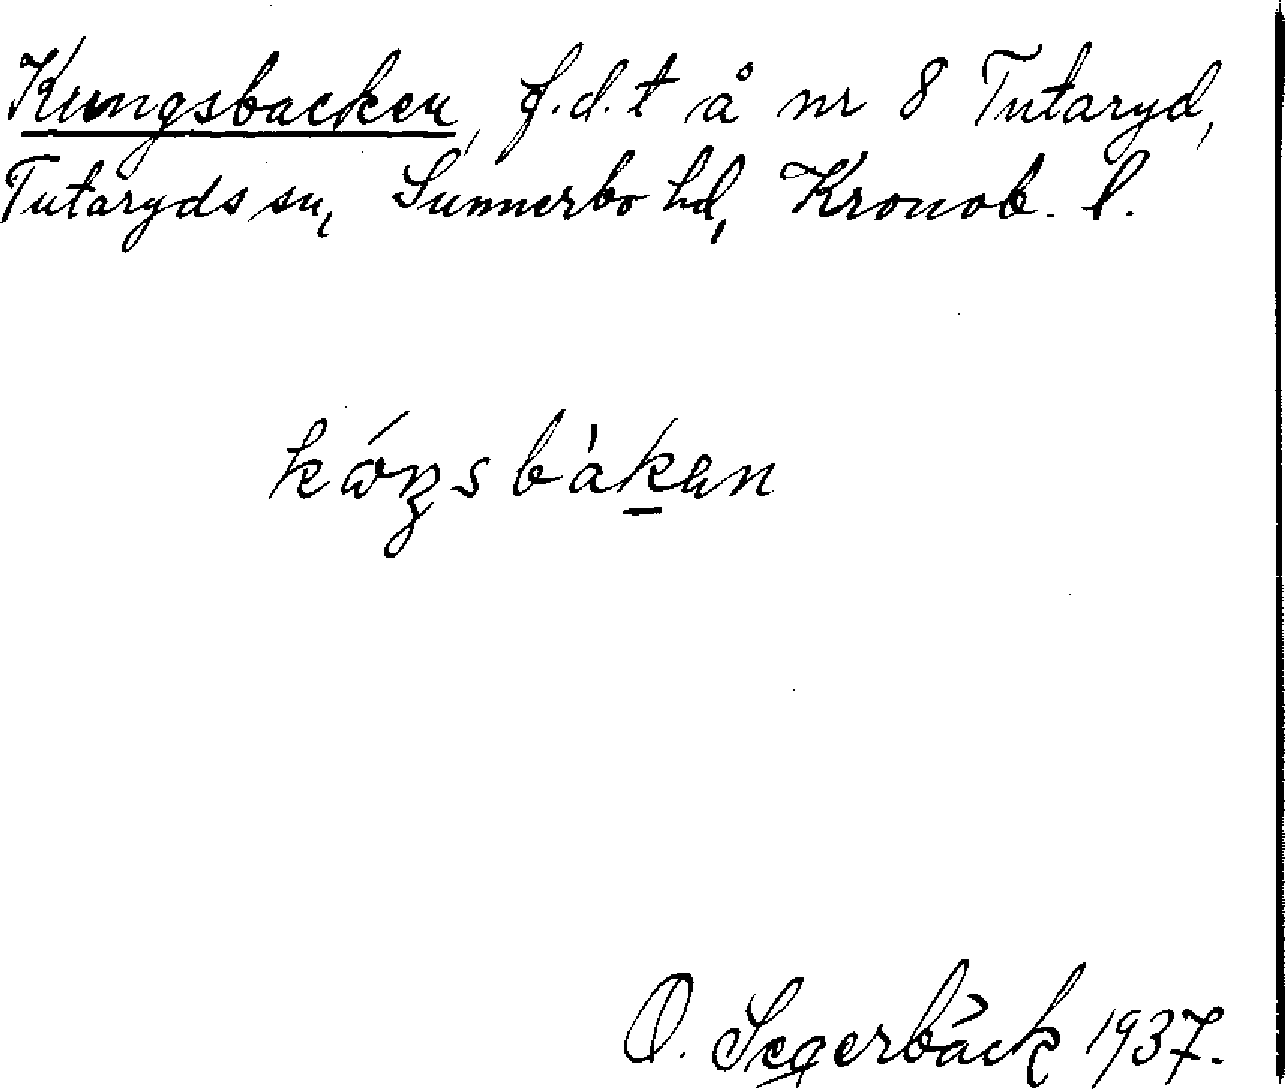 Kungsbacken, f.d.t å nr 8 Tutaryd,
Tutaryds sn, Sunnerbo hd, Kronob. l.
kɷ́ŋsbàk̲ən
O. Segerbäck 1937.